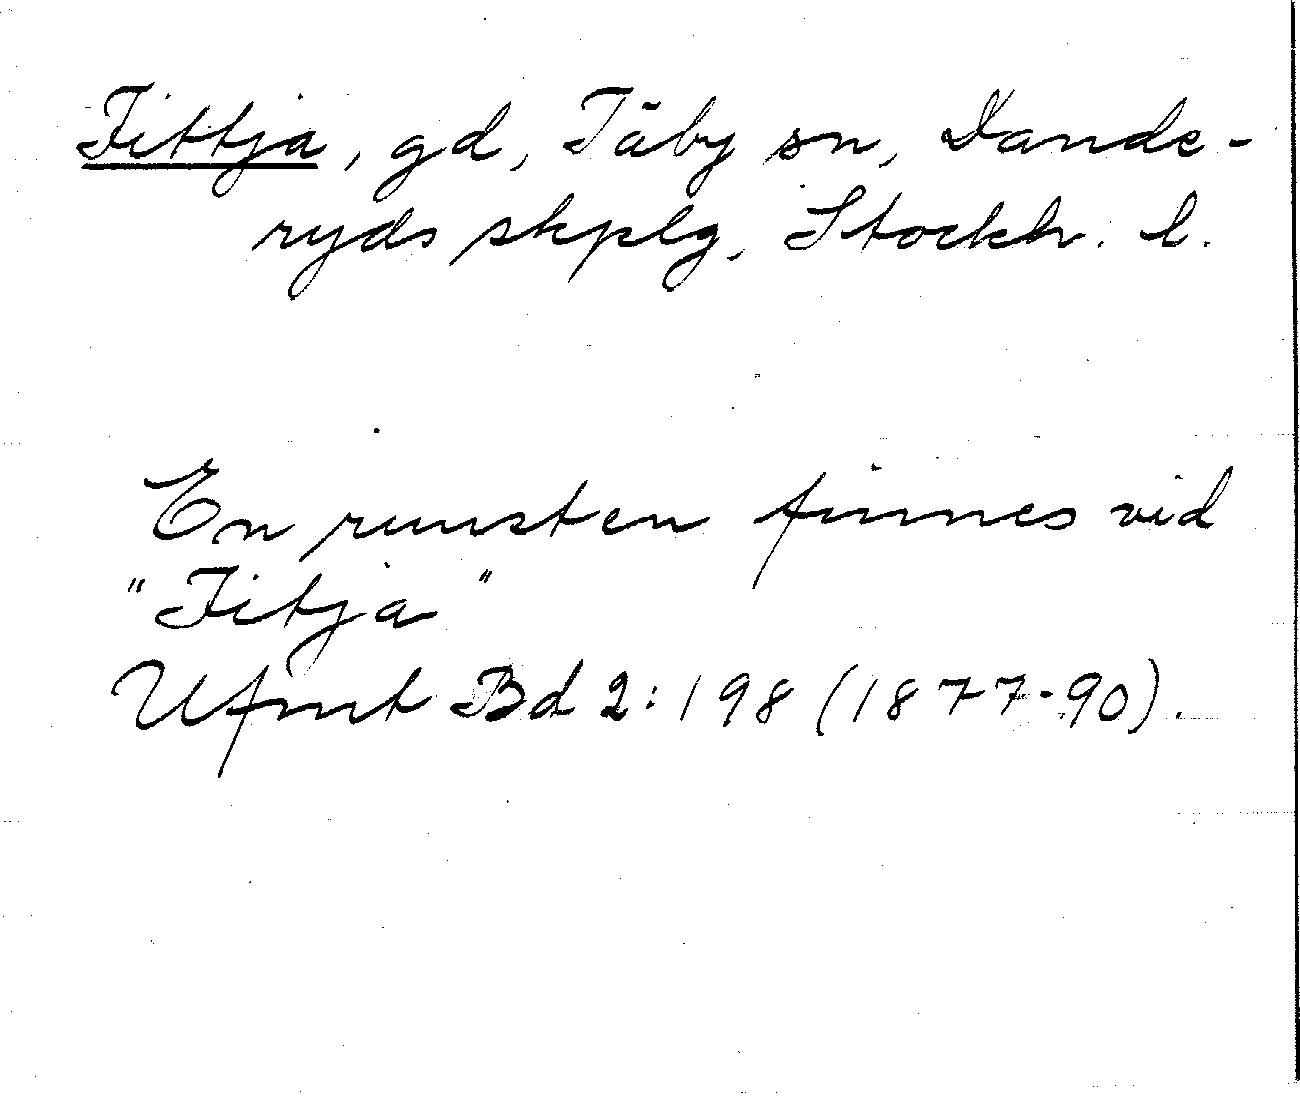 Fittja, gd, Täby sn, Dande-
ryds skplg, Stockh. l.
En runsten finnes vid
"Fitja"
Ufmt Bd 2:198 (1877-90).